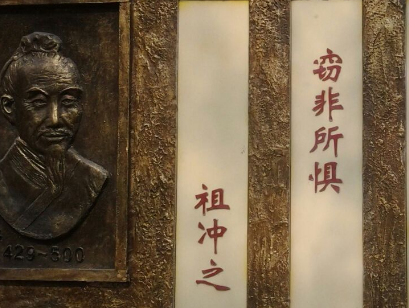 窃非所惧
祖冲之
429-500